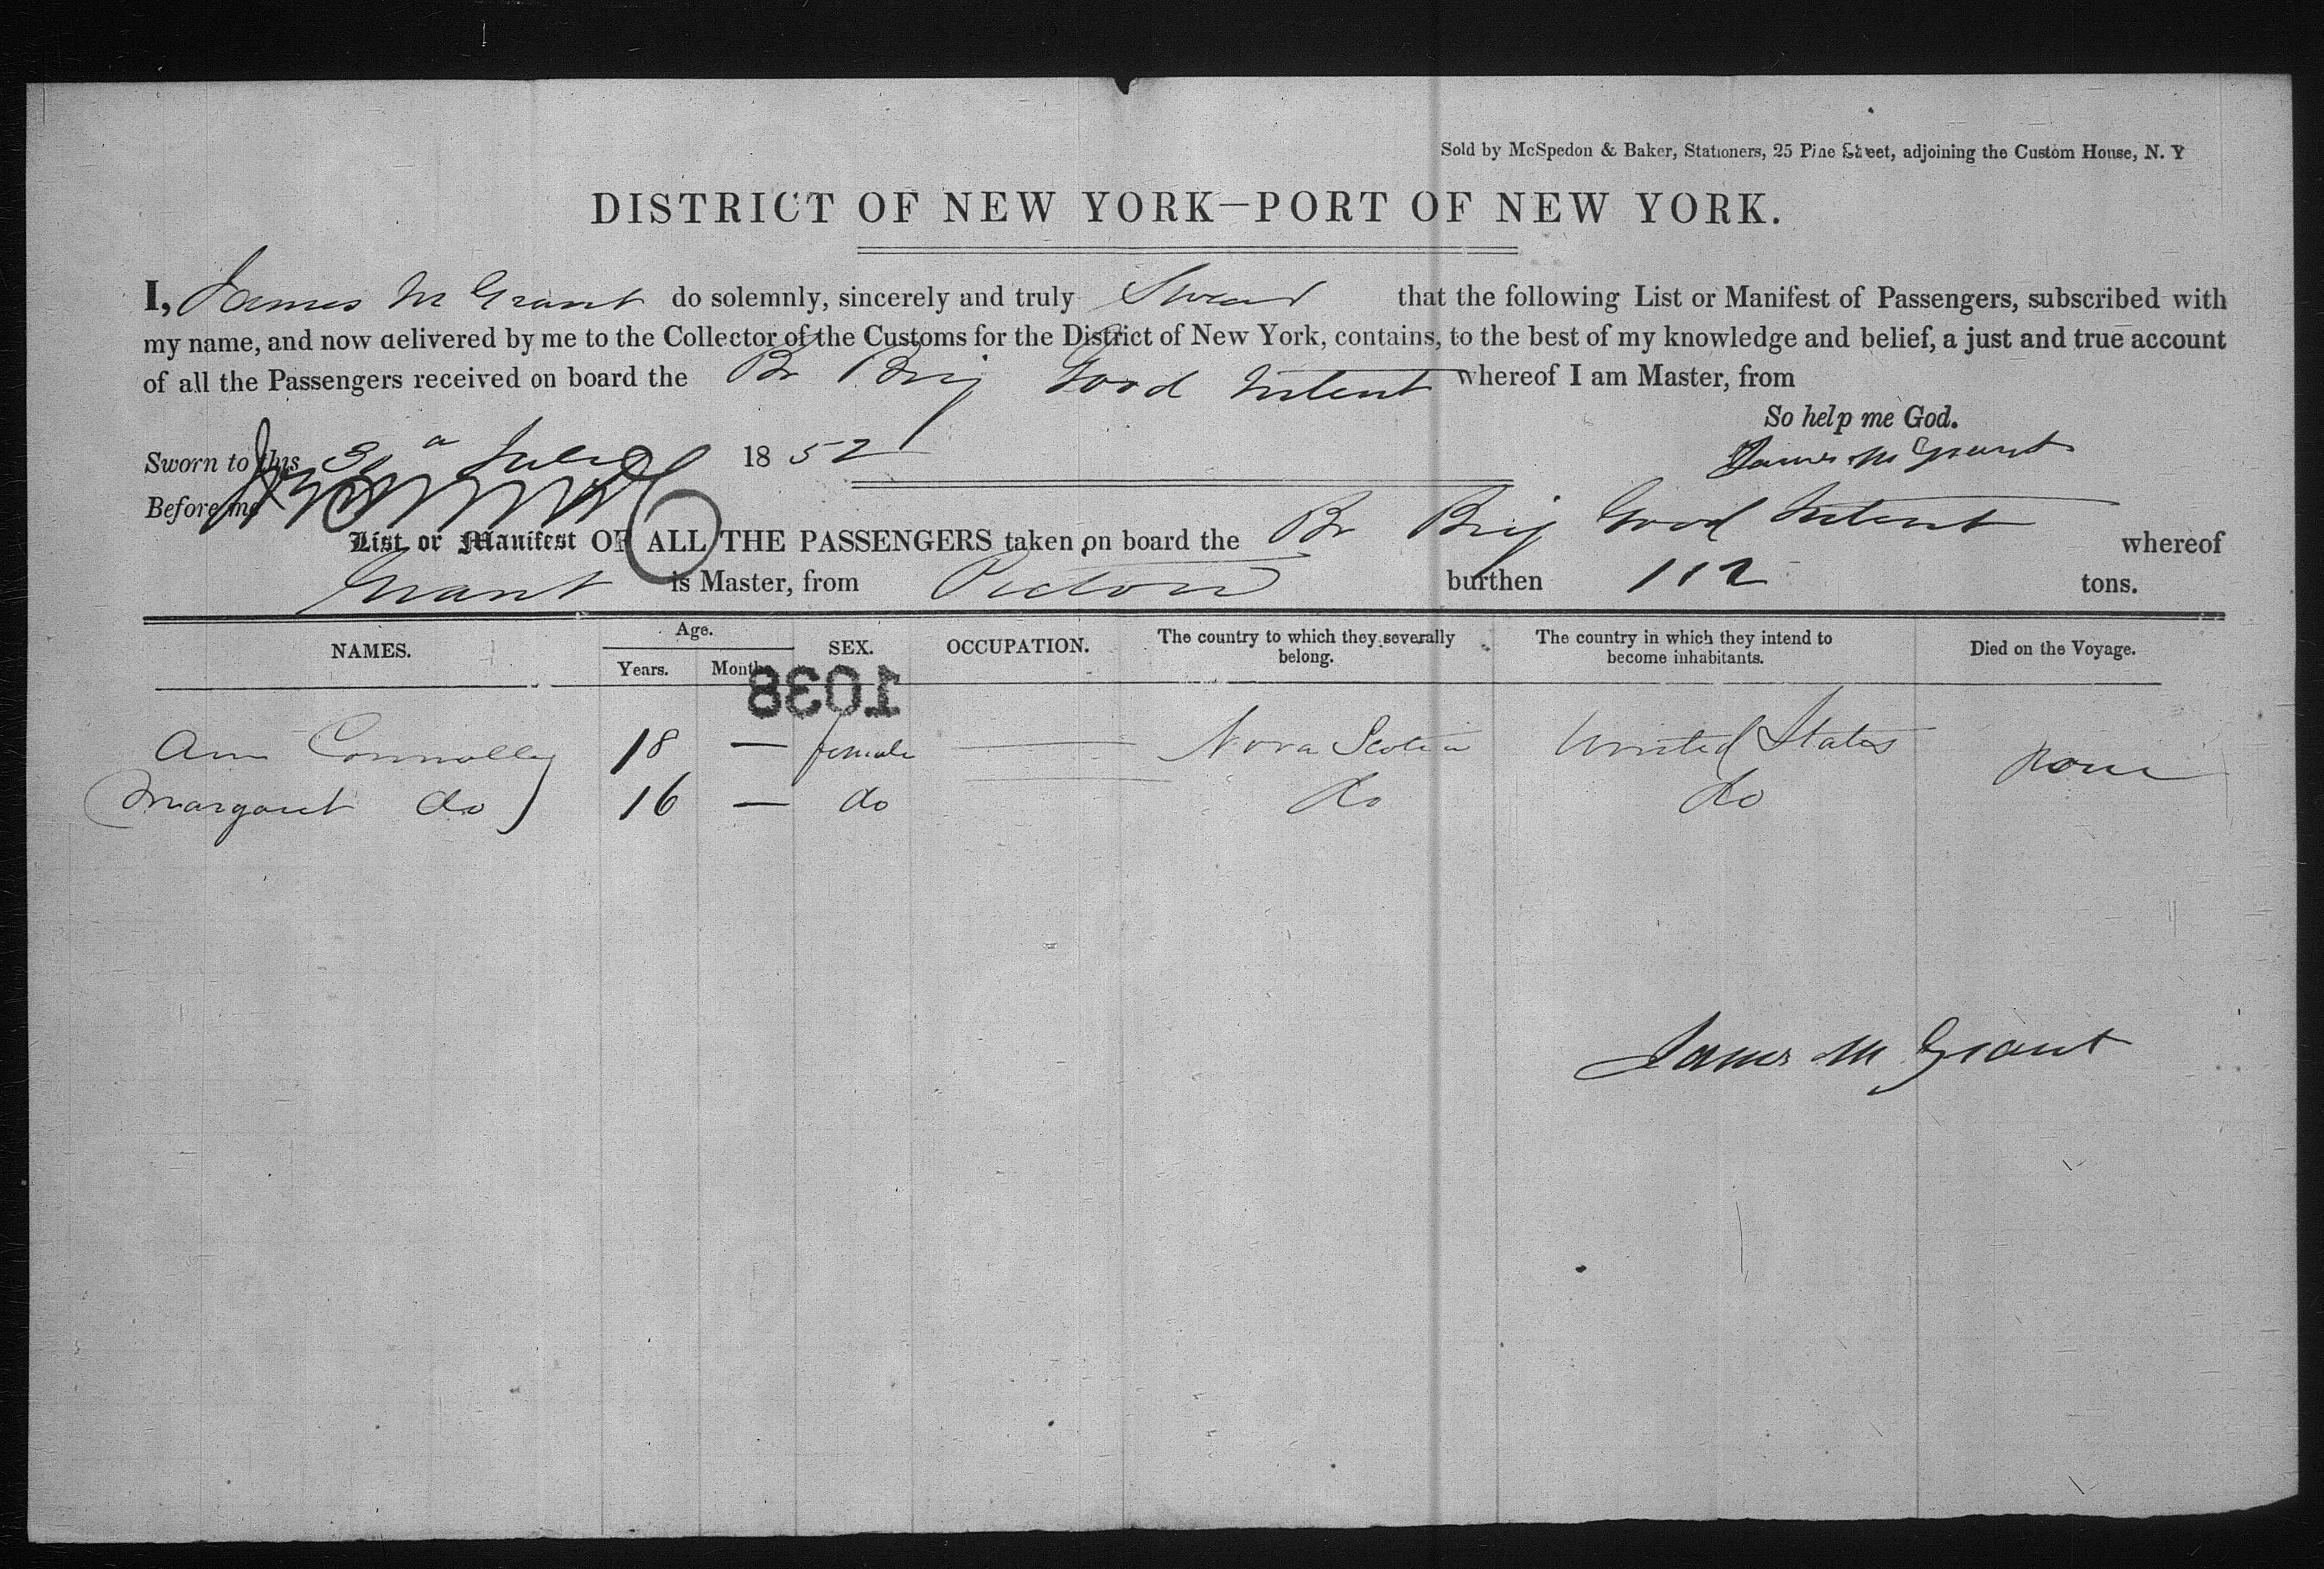 Sold by McSpedon & Baker, Stationers, 25 Pine Street, adjoining the Custom House, N. Y
DISTRICT OF NEW YORK—PORT OF NEW YORK.
I, James M Grant do solemnly, sincerely and truly Swear that the following List or Manifest of Passengers, subscribed with
my name, and now delivered by me to the Collector of the Customs for the District of New York, contains, to the best of my knowledge and belief, a just and true account
of all the Passengers received on board the Br Brig Good Intent whereof I am Master, from
So help me God.
Sworn to this July 1852 James M Grant
Before me
List or Manifest OF ALL THE PASSENGERS taken on board the Br Brig Good Intent whereof
Grant is Master, from Pictou burthen 112 tons.
NAMES. Age. SEX. OCCUPATION. The country to which they severally belong. The country in which they intend to become inhabitants. Died on the Voyage.
Years. Months
1038
Ann Connolly 18 — female — Nova Scotia United States None
(Margaret do) 16 — do — do do
James M Grant